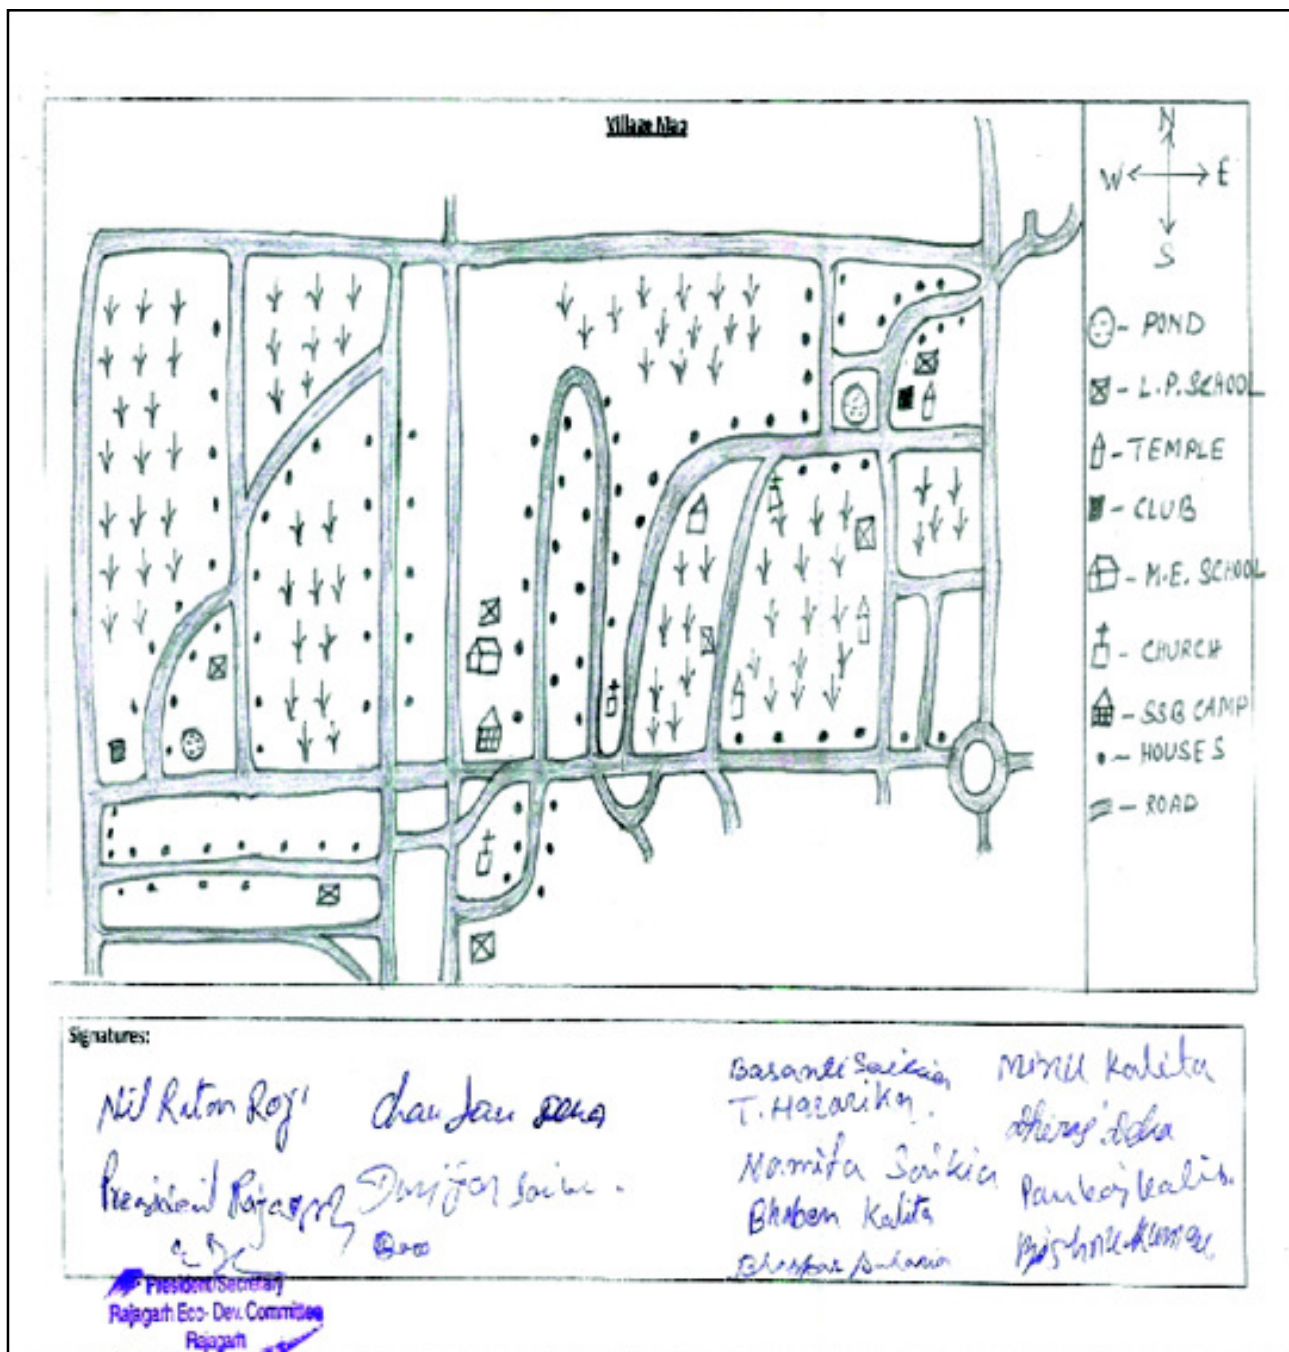 Village Map
N
W E
S
- POND
- L.P. SCHOOL
- TEMPLE
- CLUB
- M.E. SCHOOL
- CHURCH
- SSB CAMP
- HOUSES
- ROAD
Signatures:
Nil Raton Roy
President Rajagarh
Basanti Saikia
T. Hazarika.
Namita Saikia
Bhaben Kalita
Minu Kalita
Dhiraj Deka
Pankaj Kalita
President/Secretary
Rajagarh Eco- Dev. Committee
Rajagarh